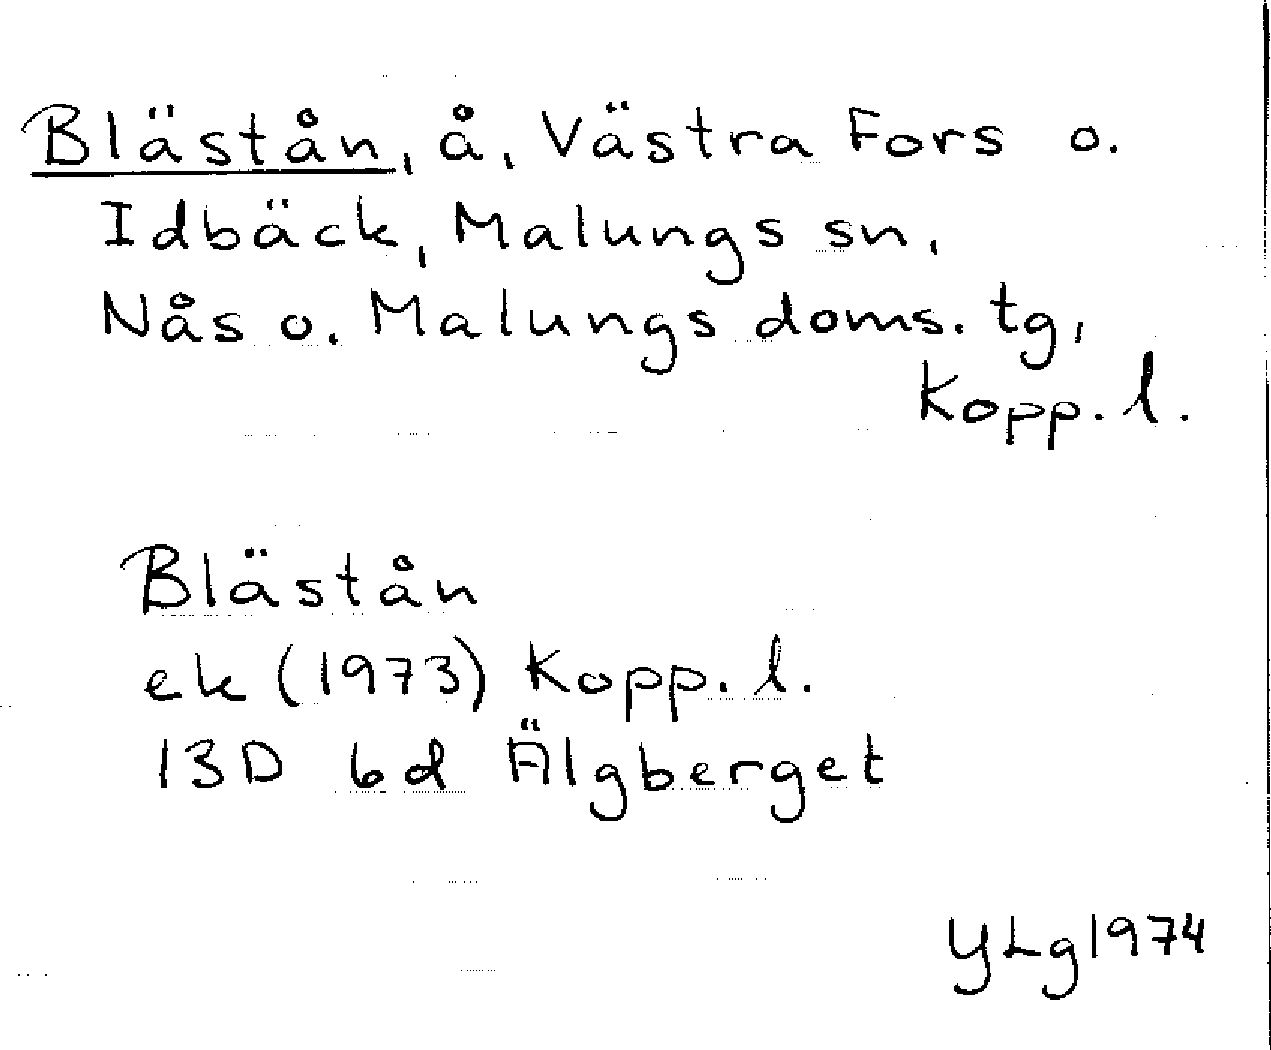 Blästån, å, Västra Fors o.
Idbäck, Malungs sn,
Nås o. Malungs doms. tg,
Kopp. l.
Blästån
ek (1973) Kopp. l.
13D 6d Älgberget
YLg 1974